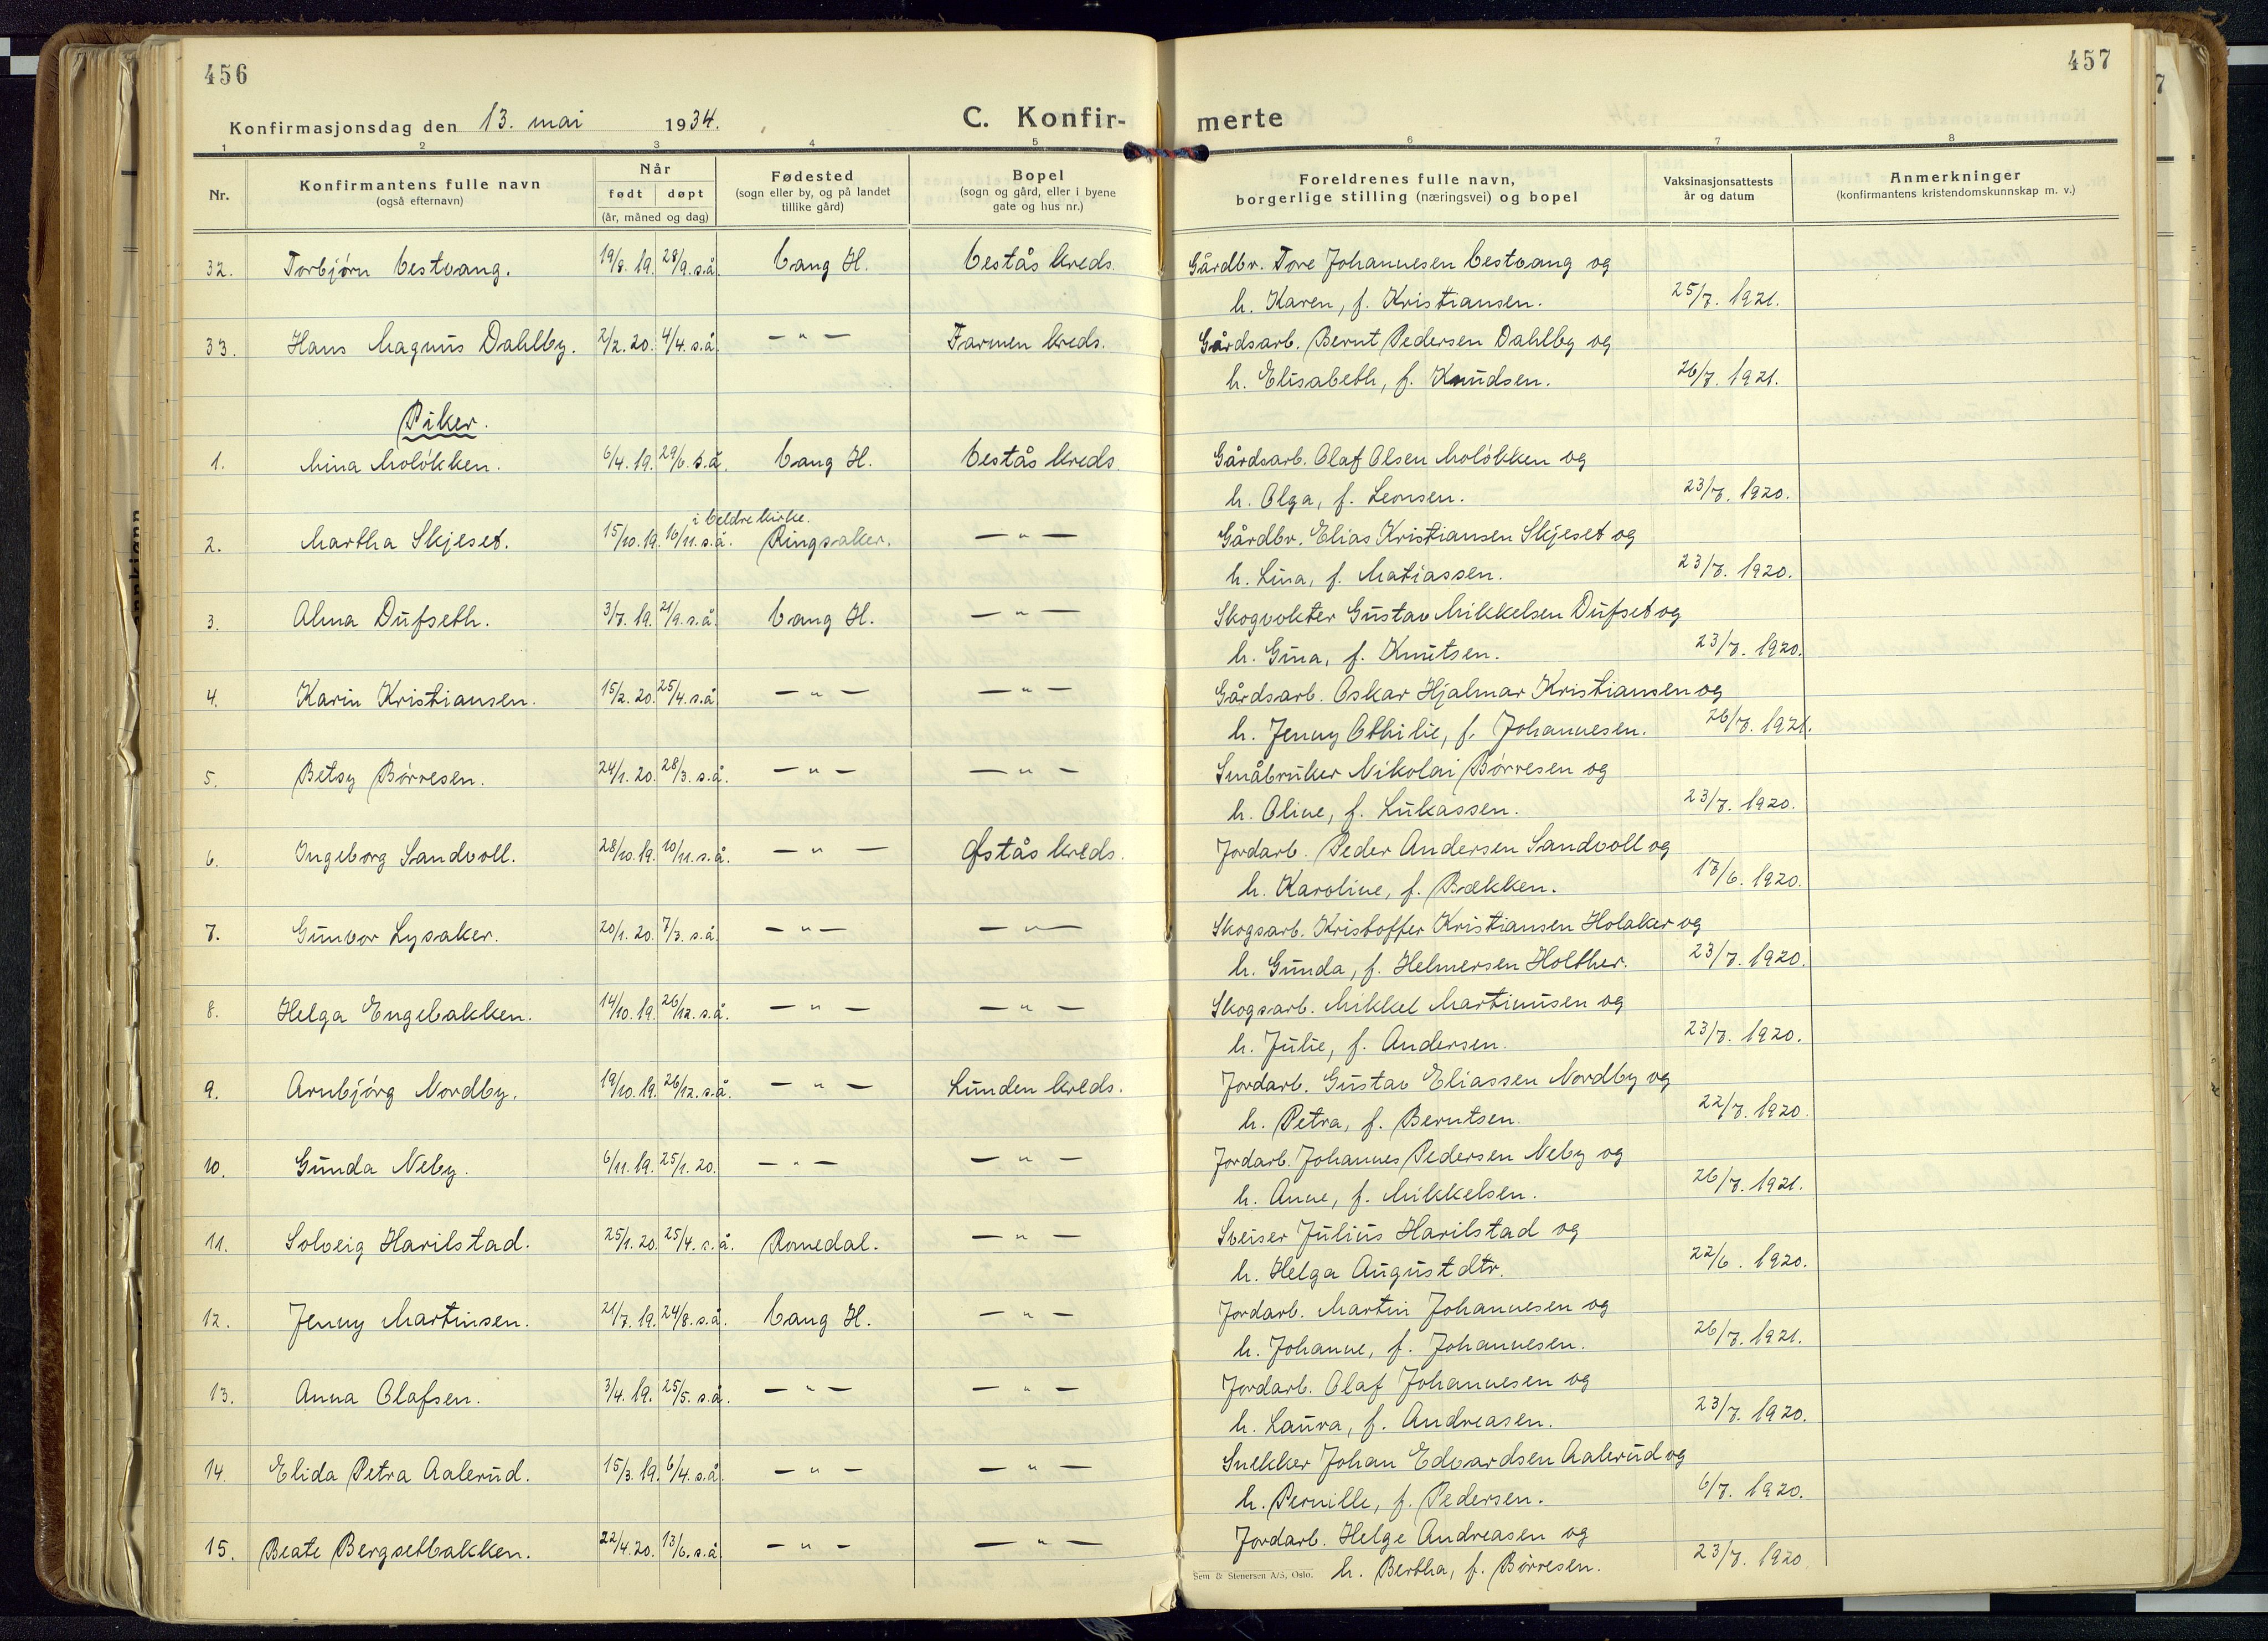 456
457
Konfirmasjonsdag den 13. mai 1934.
C. Konfir-
merte
1 2 3 4 5 6 7 8
Nr.
Konfirmantens fulle navn
(også efternavn)
Når
født døpt
(år, måned og dag)
Fødested
(sogn eller by, og på landet
tillike gård)
Bopel
(sogn og gård, eller i byene
gate og hus nr.)
Foreldrenes fulle navn,
borgerlige stilling (næringsvei) og bopel
Vaksinasjonsattests
år og datum
Anmerkninger
(konfirmantens kristendomskunnskap m. v.)
32. Torbjørn Vestvang. 19/8. 19. 28/9. s.å. Vang H. Vestås kreds. Gårdbr. Tore Johannesen Vestvang og
h. Karen, f. Kristiansen. 25/7. 1921.
33. Hans Magnus Dahlby. 2/2. 20. 4/4. s.å. — " — Farmen kreds. Gårdsarb. Bernt Pedersen Dahlby og
h. Elisabeth, f. Knudsen. 26/7. 1921.
Piker.
1. Mina Moløkken. 6/4. 19. 29/6. s.å. Vang H. Vestås kreds. Gårdsarb. Olaf Olsen Moløkken og
h. Olga, f. Leonsen. 23/7. 1920.
i Veldre kirke.
2. Martha Skjeset. 15/10. 19. 16/11. s.å. Ringsaker. — " — Gårdbr. Elias Kristiansen Skjeset og
h. Lina, f. Matiassen. 23/7. 1920.
3. Alma Dufseth. 3/7. 19. 21/9. s.å. Vang H. — " — Skogvokter Gustav Mikkelsen Dufset og
h. Gina, f. Knutsen. 23/7. 1920.
4. Karin Kristiansen. 15/2. 20. 25/4. s.å. — " — — " — Gårdsarb. Oskar Hjalmar Kristiansen og
h. Jenny Othilie, f. Johannesen. 26/7. 1921.
5. Betsy Børresen. 24/1. 20. 28/3. s.å. — " — — " — Småbruker Nikolai Børresen og
h. Oline, f. Lukassen. 23/7. 1920.
6. Ingeborg Sandvoll. 28/10. 19. 10/11. s.å. — " — Østås kreds. Jordarb. Peder Andersen Sandvoll og
h. Karoline, f. Bækken. 17/6. 1920.
7. Gunvor Lysaker. 20/1. 20. 7/3. s.å. — " — — " — Skogsarb. Kristoffer Kristiansen Holaker og
h. Gunda, f. Helmersen Holther. 23/7. 1920.
8. Helga Engebakken. 14/10. 19. 26/12. s.å. — " — — " — Skogsarb. Mikkel Martinusen og
h. Julie, f. Andersen. 23/7. 1920.
9. Arnbjørg Nordby. 19/10. 19. 26/12. s.å. — " — Lunden kreds. Jordarb. Gustav Eliassen Nordby og
h. Petra, f. Berntsen. 22/7. 1920.
10. Gunda Neby. 6/11. 19. 25/1. 20. — " — — " — Jordarb. Johannes Pedersen Neby og
h. Anne, f. Mikkelsen. 26/7. 1921.
11. Solveig Harilstad. 25/1. 20. 25/4. s.å. Romedal. — " — Sveiser Julius Harilstad og
h. Helga Augustdtr. 22/6. 1920.
12. Jenny Martinsen. 21/7. 19. 24/8. s.å. Vang H. — " — Jordarb. Martin Johannesen og
h. Johanne, f. Johannesen. 26/7. 1921.
13. Anna Olafsen. 3/4. 19. 25/5. s.å. — " — — " — Jordarb. Olaf Johannesen og
h. Laura, f. Andreasen. 23/7. 1920.
14. Elida Petra Aalerud. 15/3. 19. 6/4. s.å. — " — — " — Snekker Johan Edvardsen Aalerud og
h. Pernille, f. Pedersen. 6/7. 1920.
15. Beate Bergsetbakken. 22/4. 20. 13/6. s.å. — " — — " — Jordarb. Helge Andreasen og
h. Bertha, f. Børresen. 23/7. 1920.
Sem & Stenersen A/S, Oslo.